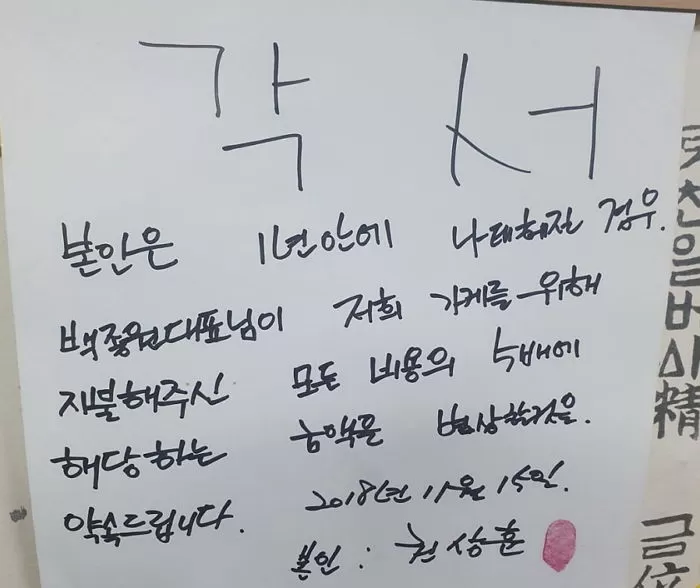 각 서
본인은 1년안에 나태해진 경우.
백종원대표님이 저희 가게를 위해
지불해주신 모든 비용의 5배에
해당하는 금액을 변상할것을.
약속드립니다. 2018년 11월 15일.
본인 : 권상훈